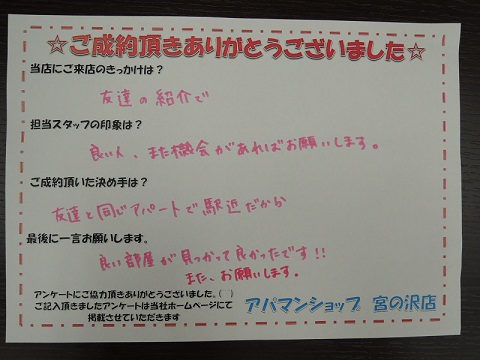 ☆ご成約頂きありがとうございました☆
当店にご来店のきっかけは？
友達の紹介で
担当スタッフの印象は？
良い人、また機会があればお願いします。
ご成約頂いた決め手は？
友達と同じアパートで駅近だから
最後に一言お願いします。
良い部屋が見つかって良かったです！！
また、お願いします。
アンケートにご協力頂きありがとうございました。(　)
ご記入頂きましたアンケートは当社ホームページにて
掲載させていただきます
アパマンショップ 宮の沢店